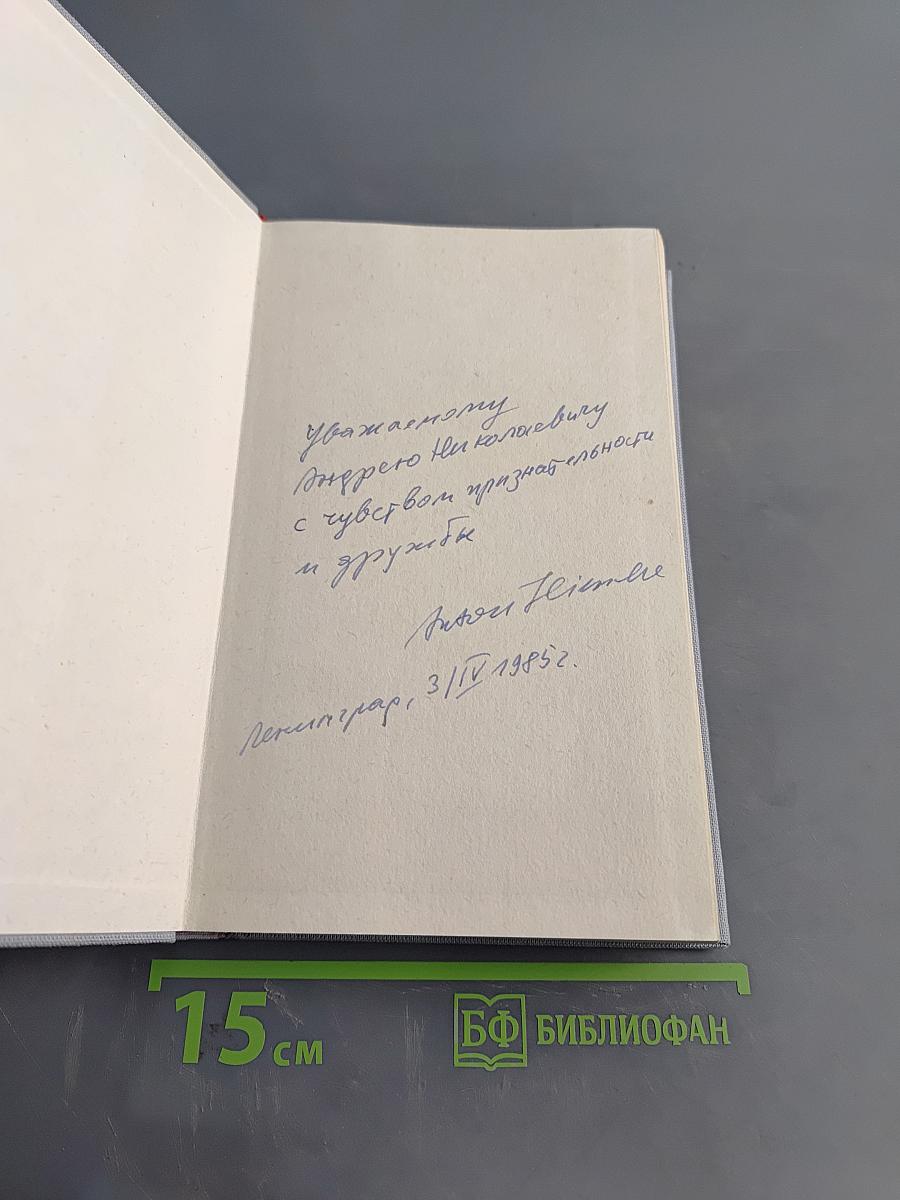 Уважаемому
Андрею Николаевичу
с чувством признательности
и дружбы
Антон
Ленинград, 3/IV 1985г.
15 см
БФ БИБЛИОФАН